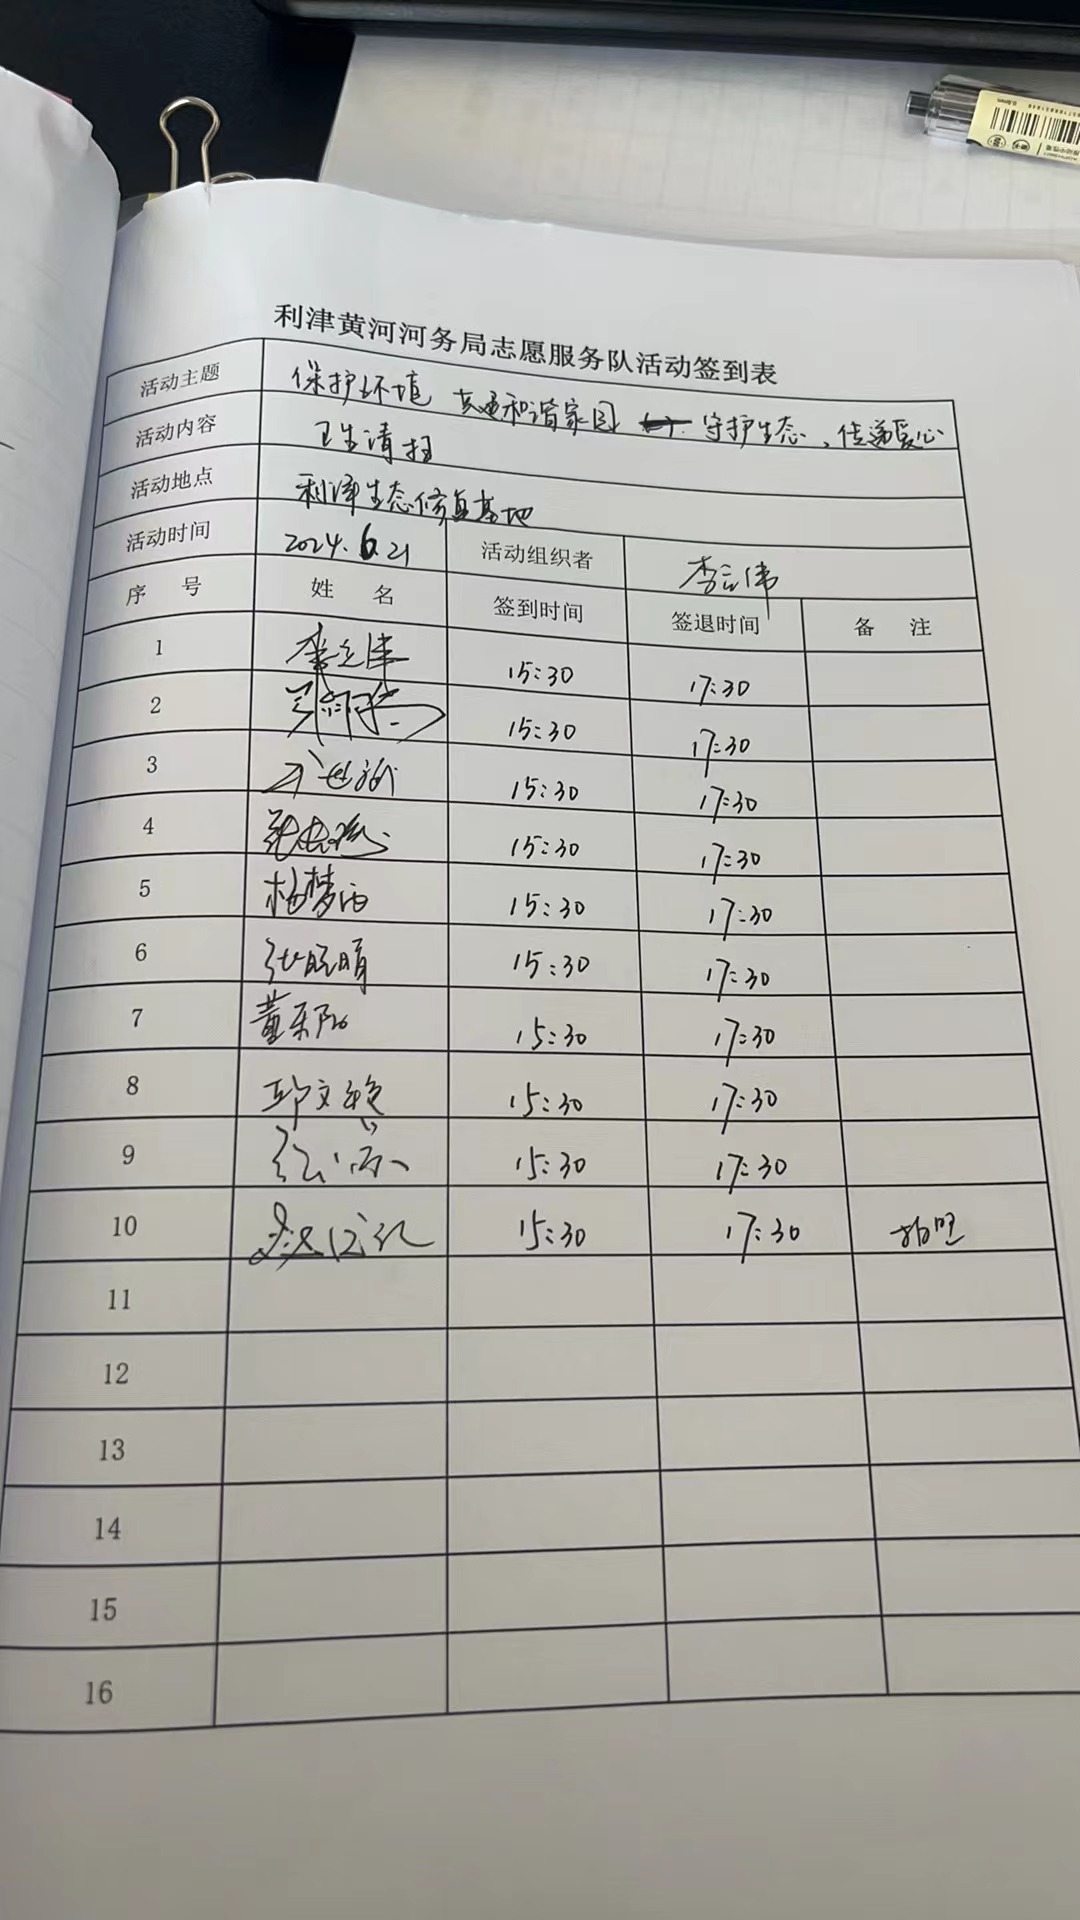 利津黄河河务局志愿服务队活动签到表
活动主题 保护环境 共建和谐家园 守护生态、传递爱心
活动内容 卫生清扫
活动地点 利津生态修复基地
活动时间 2024.6.21 活动组织者
序号 姓名 签到时间 签退时间 备注
1 15:30 17:30
2 15:30 17:30
3 15:30 17:30
4 15:30 17:30
5 杨梦雨 15:30 17:30
6 张晓晴 15:30 17:30
7 15:30 17:30
8 邱文艳 15:30 17:30
9 15:30 17:30
10 15:30 17:30 拍照
11
12
13
14
15
16